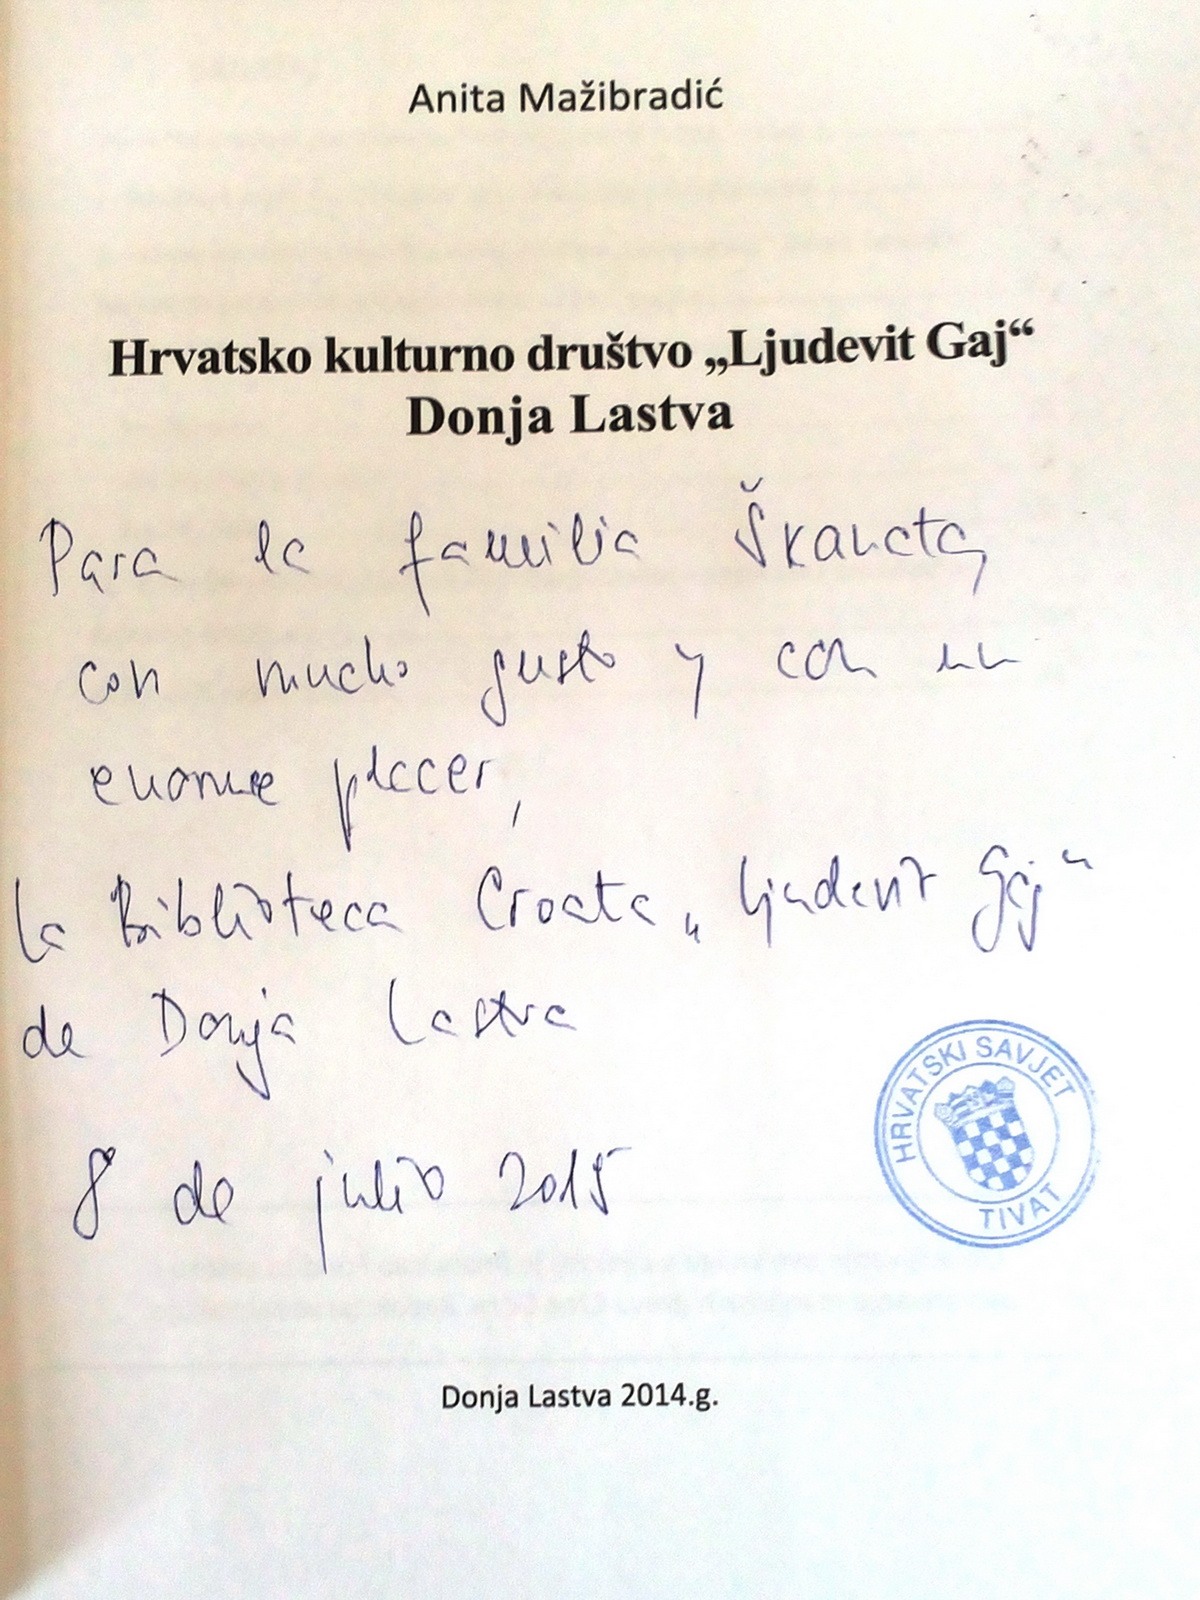 Anita Mažibradić
Hrvatsko kulturno društvo „Ljudevit Gaj“
Donja Lastva
Para la familia Škanata,
con mucho gusto y con un
enorme placer,
la Biblioteca Croata „Ljudevit Gaj“
de Donja Lastva
8 de julio 2015
HRVATSKI SAVJET
TIVAT
Donja Lastva 2014.g.